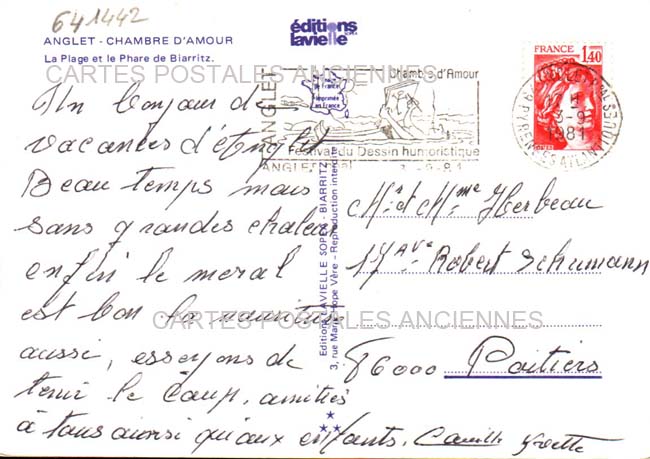 641442
éditions
lavielle
ANGLET - CHAMBRE D'AMOUR
La Plage et le Phare de Biarritz.
CARTES POSTALES ANCIENNES
FRANCE
1,40
ANGLET
Chambre d'Amour
Festival du Dessin humoristique
3-9
1981
PYRENEES ATLANTIQUES
Un bonjour de
vacances d'Anglet
Beau temps mais
sans grandes chaleur
enfin le moral
est bon la nourriture
aussi, essayons de
tenir le coup, amitiés
à tous ainsi qu'aux enfants. Camille Yvette
Mr et Mme Herbeau
17 Ave Robert Schumann
86000 Poitiers
CARTES POSTALES ANCIENNES
Editions LAVIELLE SOPEN - BIARRITZ
3, rue Marie Hope Vère - Reproduction interdite